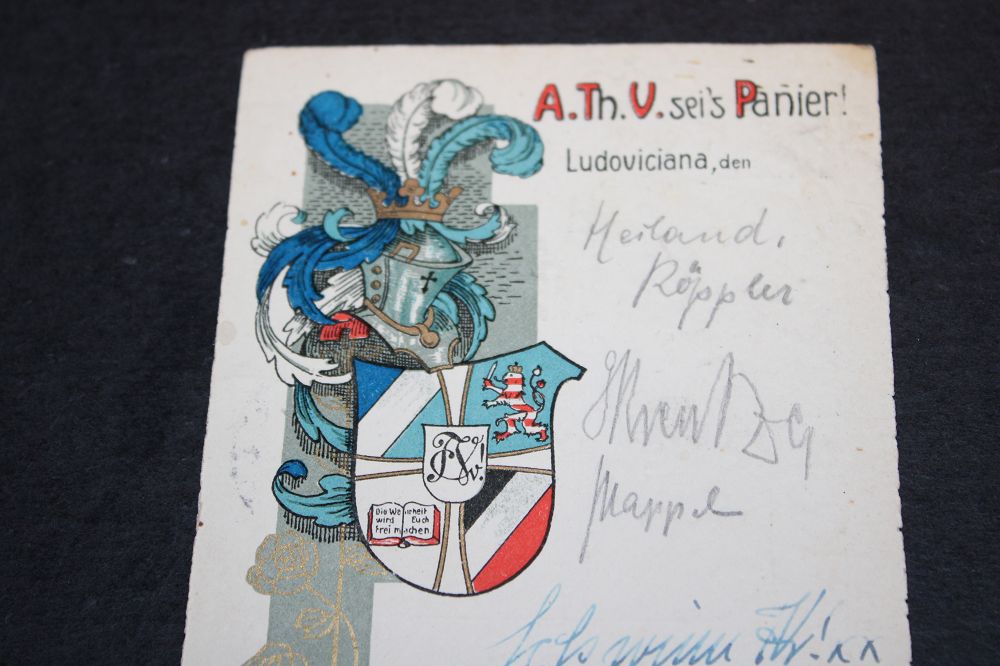 A.Th.V. sei's Panier!
Ludoviciana, den
Heiland,
Röppler
Mappel
Die Wahrheit
wird Euch
frei machen